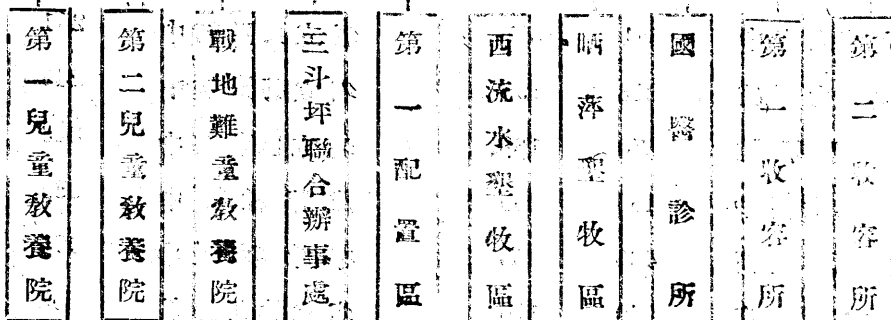 第二收容所
第一收容所
國醫診所
晒湴墾牧區
西流水墾牧區
第一配置區
三斗坪聯合辦事處
戰地難童敎養院
第二兒童敎養院
第一兒童敎養院